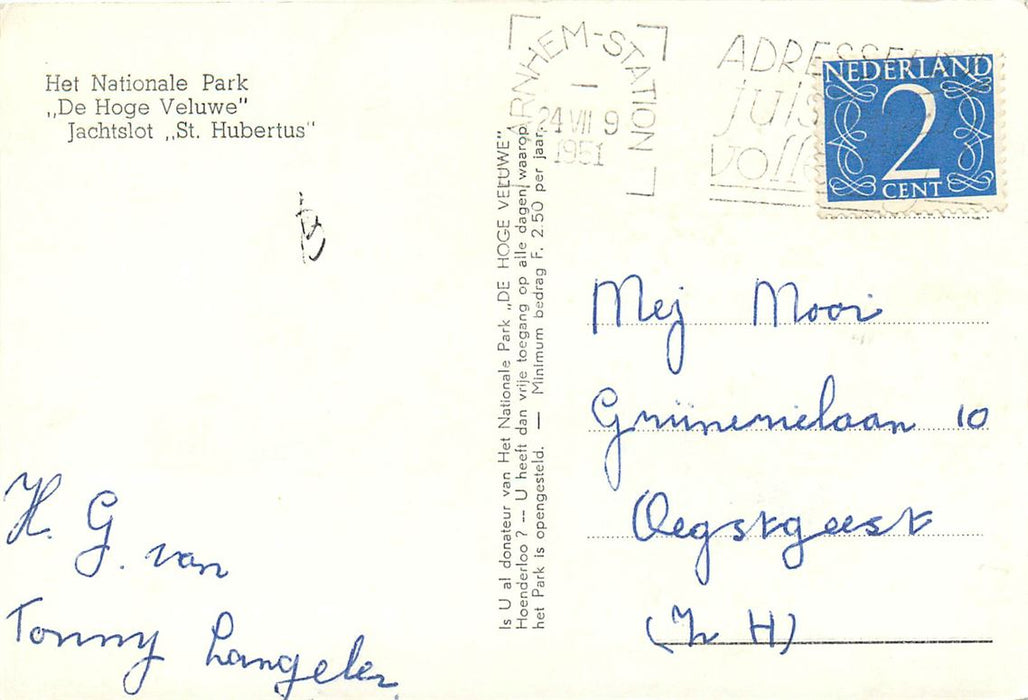 Het Nationale Park
„De Hoge Veluwe”
Jachtslot „St. Hubertus”
H. G. van
Tonny Langeler
Is U al donateur van Het Nationale Park „DE HOGE VELUWE”
Hoenderloo ? -- U heeft dan vrije toegang op alle dagen waarop
het Park is opengesteld. — Minimum bedrag F. 2.50 per jaar.
ARNHEM-STATION
24 VII 9
1951
ADRESSEER
juis
volle
NEDERLAND
2
CENT
Mej Mooi
10
Oegstgeest
(Z H)